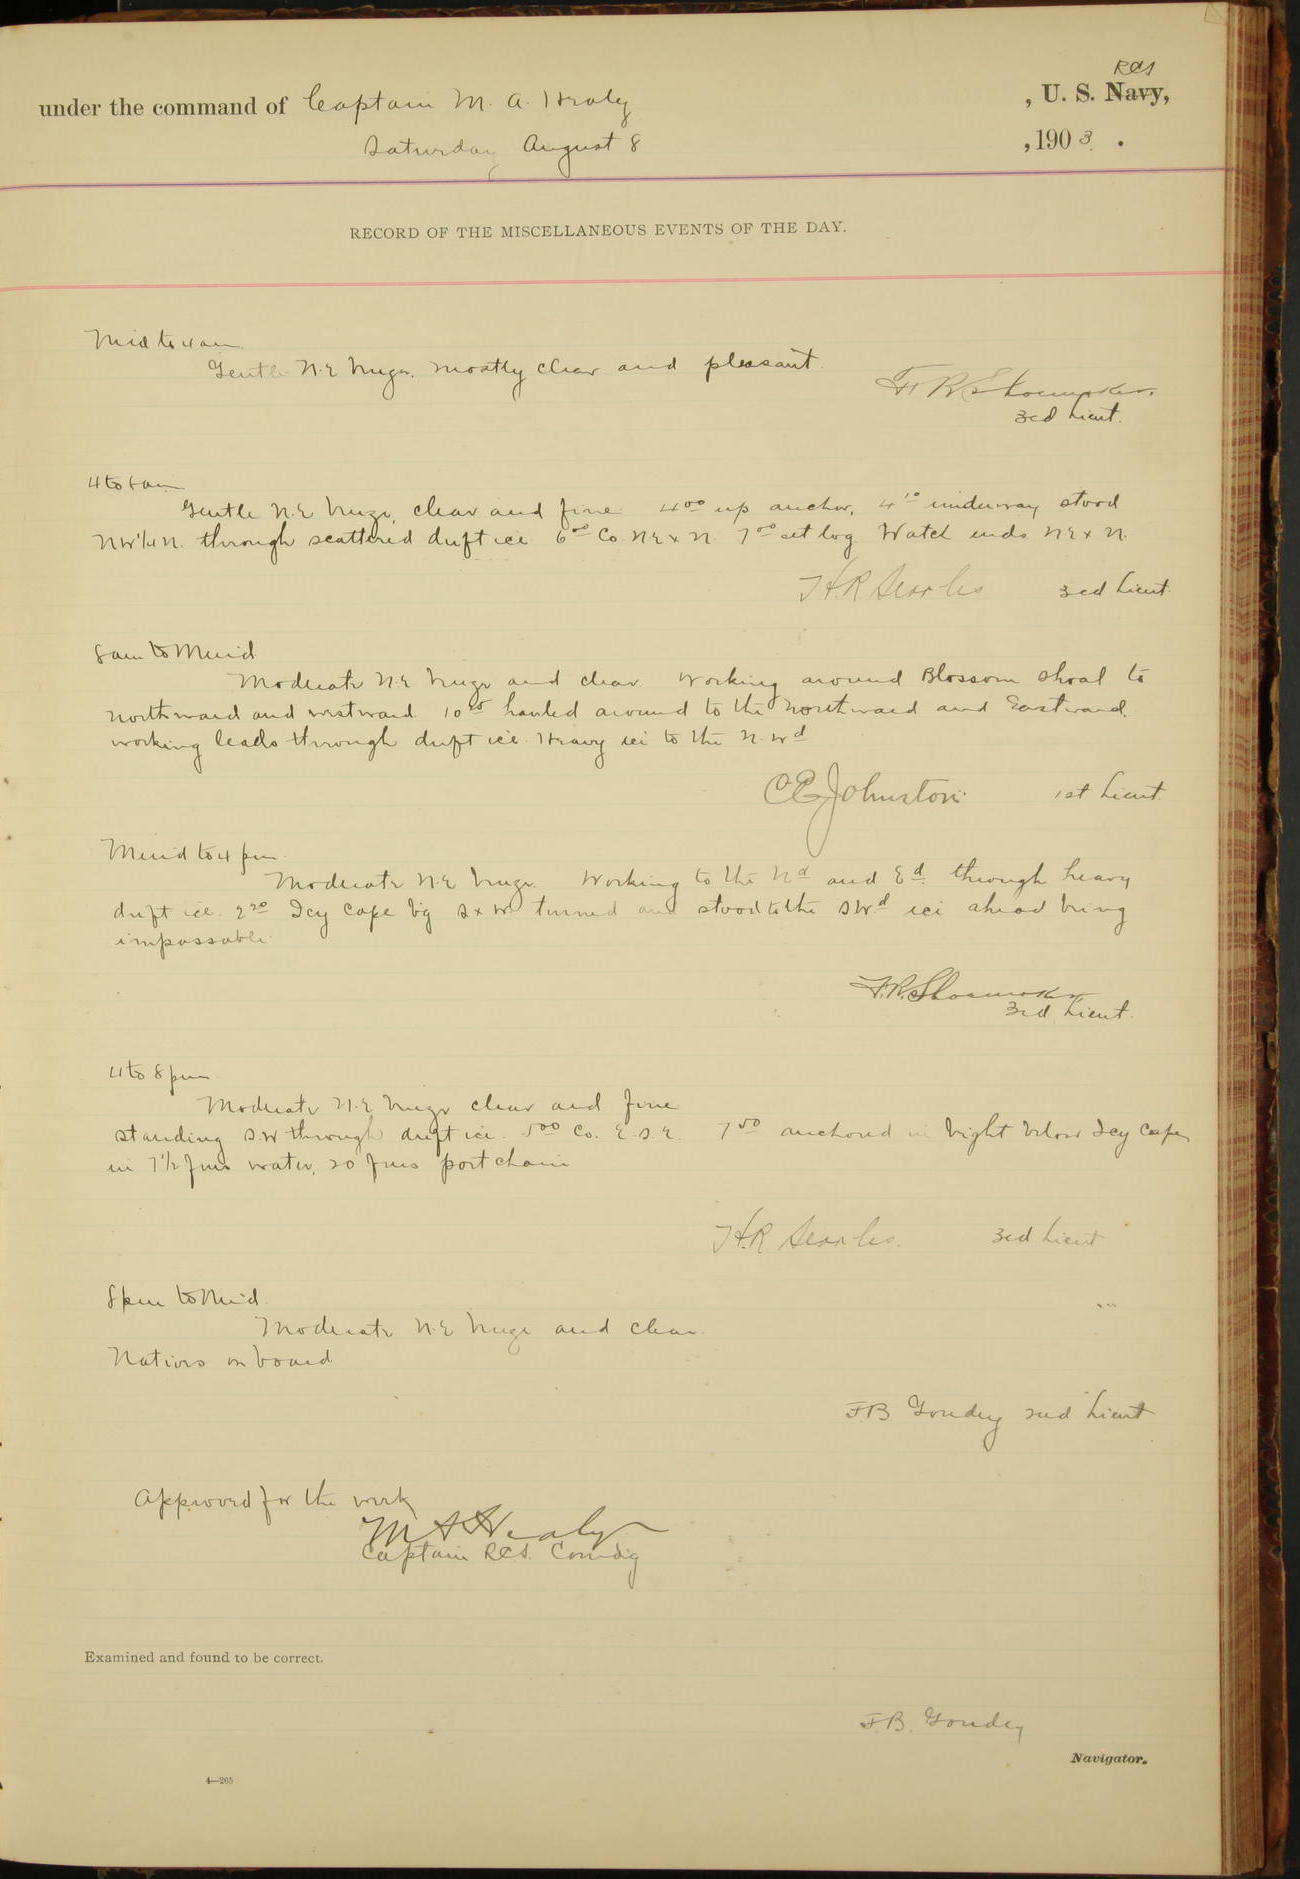 under the command of Captain M. A. Healy , U. S. Navy, RCS
Saturday August 8 , 1903 .
RECORD OF THE MISCELLANEOUS EVENTS OF THE DAY.
Mid to 4 am
Gentle N.E breeze, mostly clear and pleasant.
F. R. Shoemaker.
3rd Lieut.
4 to 8 am
Gentle N.E breeze, clear and fine 4⁰⁰ up anchor, 4¹⁰ underway stood
NW¼N. through scattered drift ice 6⁰⁰ Co. NExN. 7⁰⁰ set log Watch ends NExN.
H.R Searles 3rd Lieut
8 am to Merid
Moderate N.E breeze and clear Working around Blossom shoal to
northward and westward. hauled around to the northward and Eastward,
working leads through drift ice. Heavy ice to the N.Wd
C E Johnston 1st Lieut
Merid to 4 pm
Moderate N.E breeze. Working to the Nd and Ed through heavy
drift ice. 2²⁰ Icy Cape bg SxW. turned and stood to the SWd ice ahead being
impassable
F.R. Shoemaker
3rd Lieut.
4 to 8 pm
Moderate N.E breeze clear and fine
standing S.W through drift ice. 5⁰⁰ Co. E.S.E. 7⁵⁰ anchored in bight below Icy Cape,
in 7½ fms water, 20 fms port chain
H.R Searles. 3rd Lieut
8 pm to Mid.
Moderate N.E breeze and clear.
Natives on board
F.B Goudey 2nd Lieut
Approved for the week
M A Healy
Captain RCS. Comdg
Examined and found to be correct.
F.B. Goudey
Navigator.
4—265